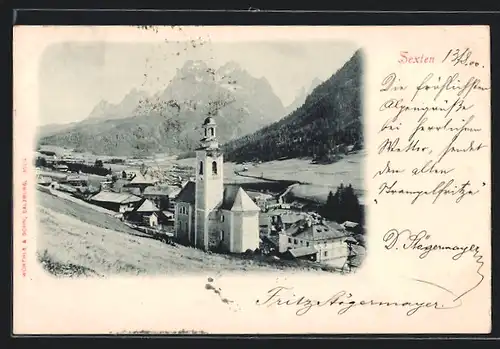 Sexten
13/8 00.
Die fröhlichsten
Alpengrüße
bei herrlichem
Wetter, sendet
den alten
"Trampelfritze"
D. Stegermayer
Fritz Aigermayer
WÜRTHLE & SOHN, SALZBURG.